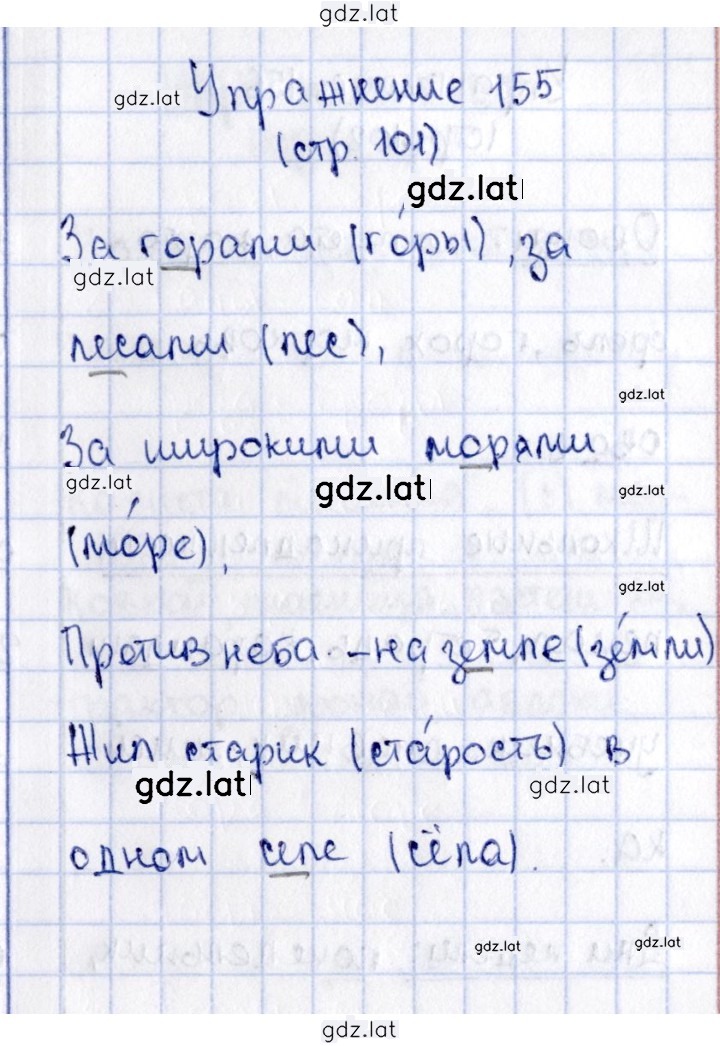 gdz.lat
Упражнение 155
gdz.lat
(стр. 101)
gdz.lat
За горами (го́ры), за
gdz.lat
лесами (лес),
gdz.lat
За широкими морями
gdz.lat gdz.lat gdz.lat
(мо́ре),
gdz.lat
Против неба - на земле (зе́мли)
Жил старик (ста́рость) в
gdz.lat gdz.lat
одном селе (сёла).
gdz.lat gdz.lat
gdz.lat